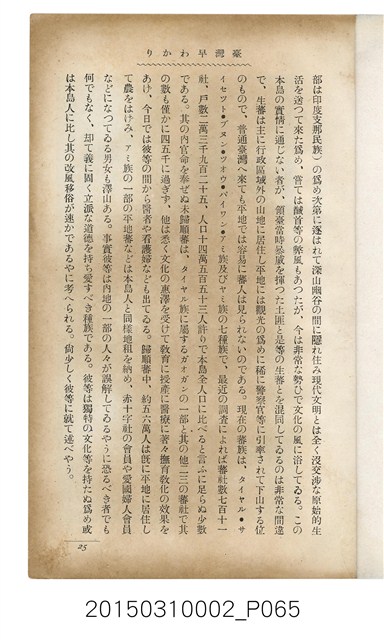 臺灣早わかり
部は印度支那民族)の爲め次第に逐はれて深山幽谷の間に隱れ住み現代文明とは全く沒交渉な原始的生
活を送つて來た爲め、嘗ては馘首等の弊風もあつたが、今は非常な勢ひで文化の風に浴してゐる。この
本島の實情に通じない者が、領臺當時猛威を揮つた土匪と是等の生蕃とを混同してゐるのは非常な間違
で、生蕃は主に行政區域外の山地に居住し平地には觀光の爲めに稀に警察官等に引率されて下山する位
のもので、普通臺灣へ來ても平地では容易に蕃人は見られないのである。現在の蕃族は、タイヤル●サ
イセツト●ブヌン●ツオウ●パイワン●アミ族及びヤミ族の七種族で、最近の調査によれば蕃社數七百十一
社、戶數二萬三千九百二十五、人口十四萬五百五十三人許りで本島全人口に比べると言ふに足らぬ少數
である。其の內官命を奉ぜぬ未歸順蕃は、タイヤル族に屬するガオガンの一部と其の他二三の蕃社で其
の數も僅かに四五千に過ぎず、他は悉く文化の惠澤を受けて敎育に授產に醫療に著々撫育敎化の效果を
あげ、今日では彼等の間から醫者や看護婦なども出てゐる。歸順蕃中、約五六萬人は既に平地に居住し
て農をはげみ、アミ族の一部の平地蕃などは本島人と同樣地租を納め、赤十字社の會員や愛國婦人會員
などになつてゐる男女も澤山ある。事實彼等は內地の一部の人々が誤解してゐるやうに恐るべき者でも
何でもなく、却て義に固く立派な道德を持ち愛すべき種族である。彼等は獨特の文化等を持たぬ爲め或
は本島人に比し其の改風移俗が速かであるやに考へられる。尙少しく彼等に就て述べやう。
25
20150310002_P065